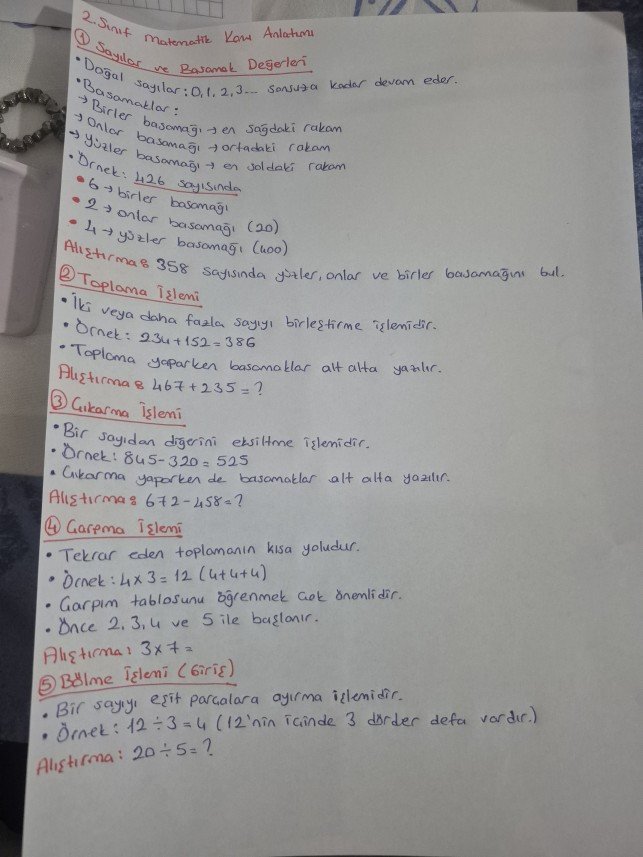 2. Sınıf Matematik Konu Anlatımı
① Sayılar ve Basamak Değerleri
• Doğal sayılar: 0, 1, 2, 3... sonsuza kadar devam eder.
• Basamaklar:
→ Birler basamağı → en sağdaki rakam
→ Onlar basamağı → ortadaki rakam
→ yüzler basamağı → en soldaki rakam
• Örnek: 426 sayısında
• 6 → birler basamağı
• 2 → onlar basamağı (20)
• 4 → yüzler basamağı (400)
Alıştırma: 358 sayısında yüzler, onlar ve birler basamağını bul.
② Toplama İşlemi
• İki veya daha fazla sayıyı birleştirme işlemidir.
• Örnek: 234+152=386
• Toplama yaparken basamaklar alt alta yazılır.
Alıştırma: 467+235=?
③ Çıkarma İşlemi
• Bir sayıdan diğerini eksiltme işlemidir.
• Örnek: 845-320=525
• Çıkarma yaparken de basamaklar alt alta yazılır.
Alıştırma: 672-458=?
④ Çarpma İşlemi
• Tekrar eden toplamanın kısa yoludur.
• Örnek: 4x3=12 (4+4+4)
• Çarpım tablosunu öğrenmek çok önemlidir.
• Önce 2, 3, 4 ve 5 ile başlanır.
Alıştırma: 3x7=
⑤ Bölme İşlemi (Giriş)
• Bir sayıyı eşit parçalara ayırma işlemidir.
• Örnek: 12÷3=4 (12'nin içinde 3 dörder defa vardır.)
Alıştırma: 20÷5=?